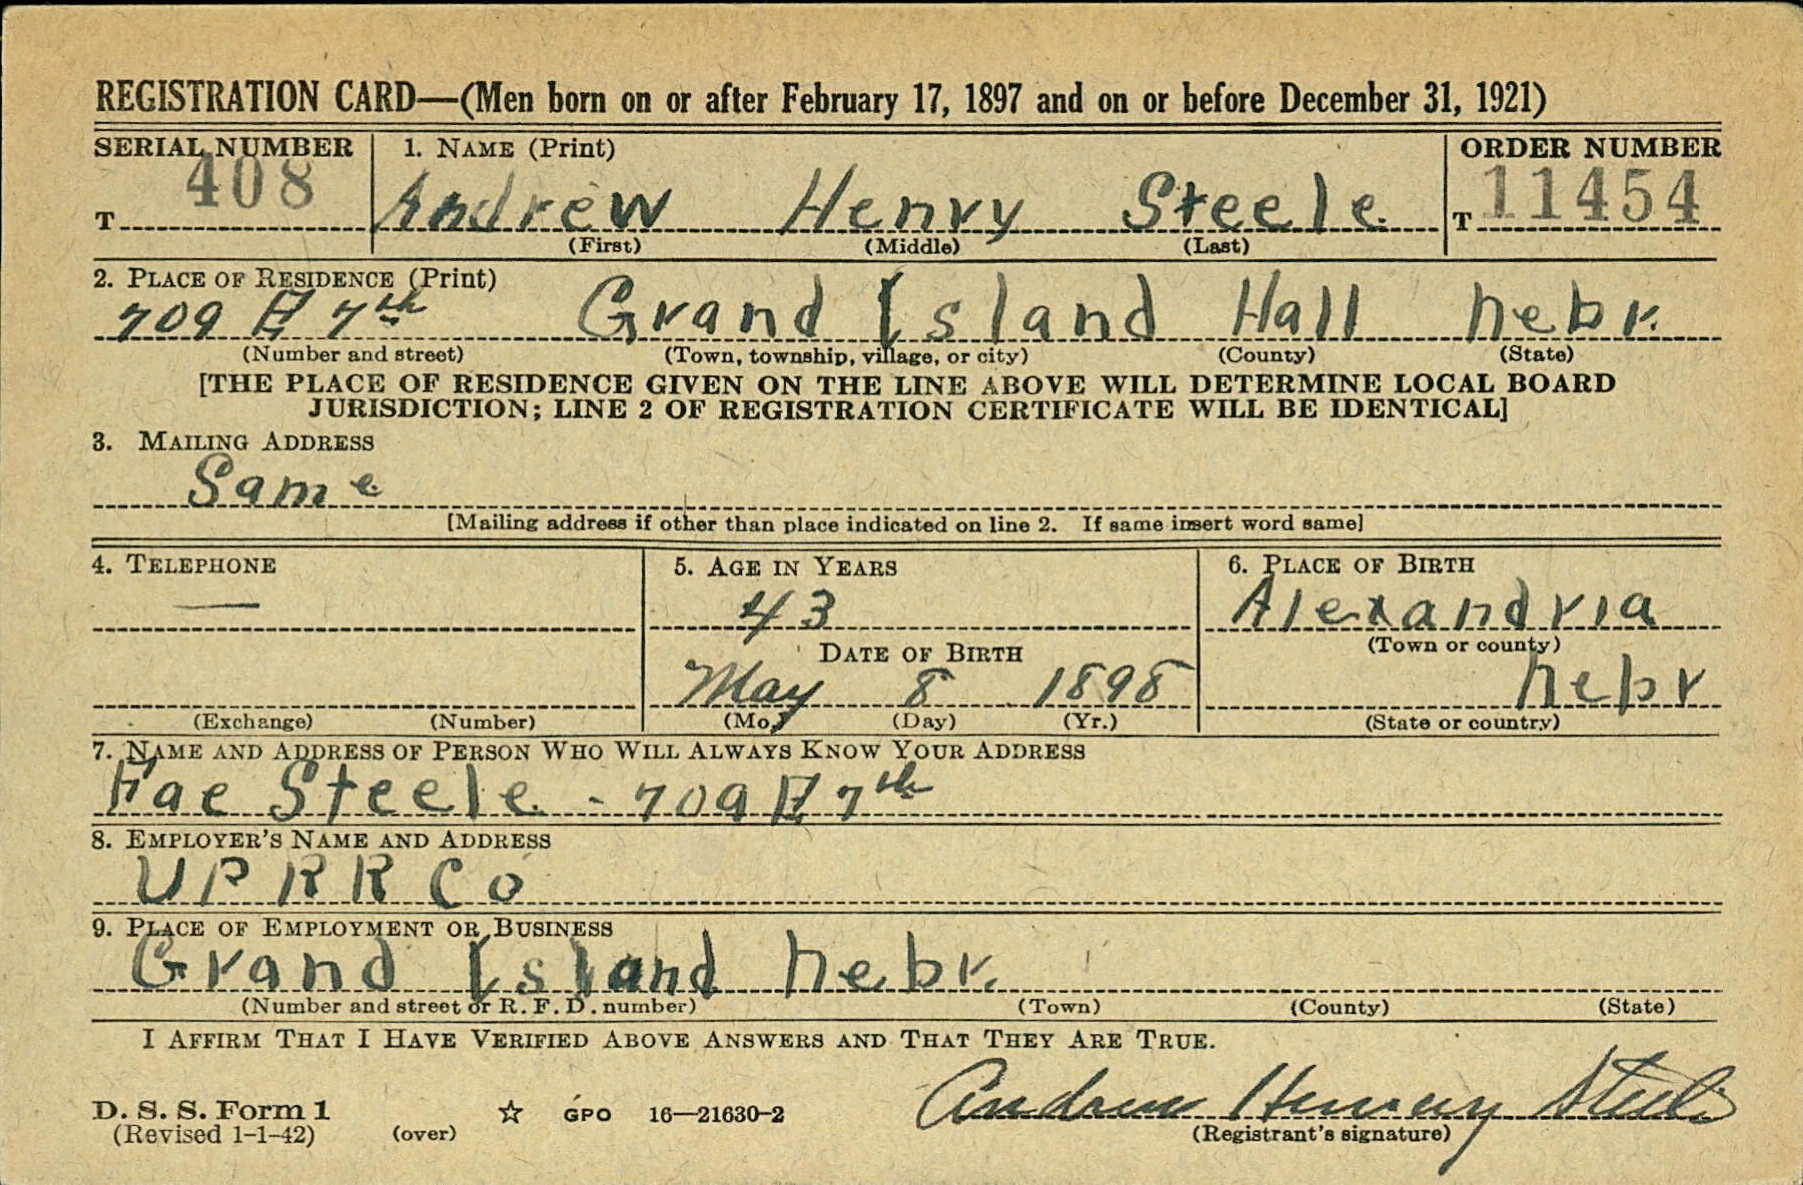 REGISTRATION CARD—(Men born on or after February 17, 1897 and on or before December 31, 1921)
SERIAL NUMBER 1. NAME (Print) ORDER NUMBER
T 408 Andrew Henry Steele T 11454
(First) (Middle) (Last)
2. PLACE OF RESIDENCE (Print)
709 E 7th Grand Island Hall Nebr.
(Number and street) (Town, township, village, or city) (County) (State)
[THE PLACE OF RESIDENCE GIVEN ON THE LINE ABOVE WILL DETERMINE LOCAL BOARD
JURISDICTION; LINE 2 OF REGISTRATION CERTIFICATE WILL BE IDENTICAL]
3. MAILING ADDRESS
Same
[Mailing address if other than place indicated on line 2. If same insert word same]
4. TELEPHONE 5. AGE IN YEARS 6. PLACE OF BIRTH
— 43 Alexandria
DATE OF BIRTH (Town or county)
May 8 1898 Nebr
(Exchange) (Number) (Mo.) (Day) (Yr.) (State or country)
7. NAME AND ADDRESS OF PERSON WHO WILL ALWAYS KNOW YOUR ADDRESS
Fae Steele - 709 E 7th
8. EMPLOYER'S NAME AND ADDRESS
U P R R Co
9. PLACE OF EMPLOYMENT OR BUSINESS
Grand Island Nebr.
(Number and street or R. F. D. number) (Town) (County) (State)
I AFFIRM THAT I HAVE VERIFIED ABOVE ANSWERS AND THAT THEY ARE TRUE.
Andrew Henry Steele
D. S. S. Form 1 ☆ GPO 16—21630-2
(Revised 1-1-42) (over) (Registrant's signature)